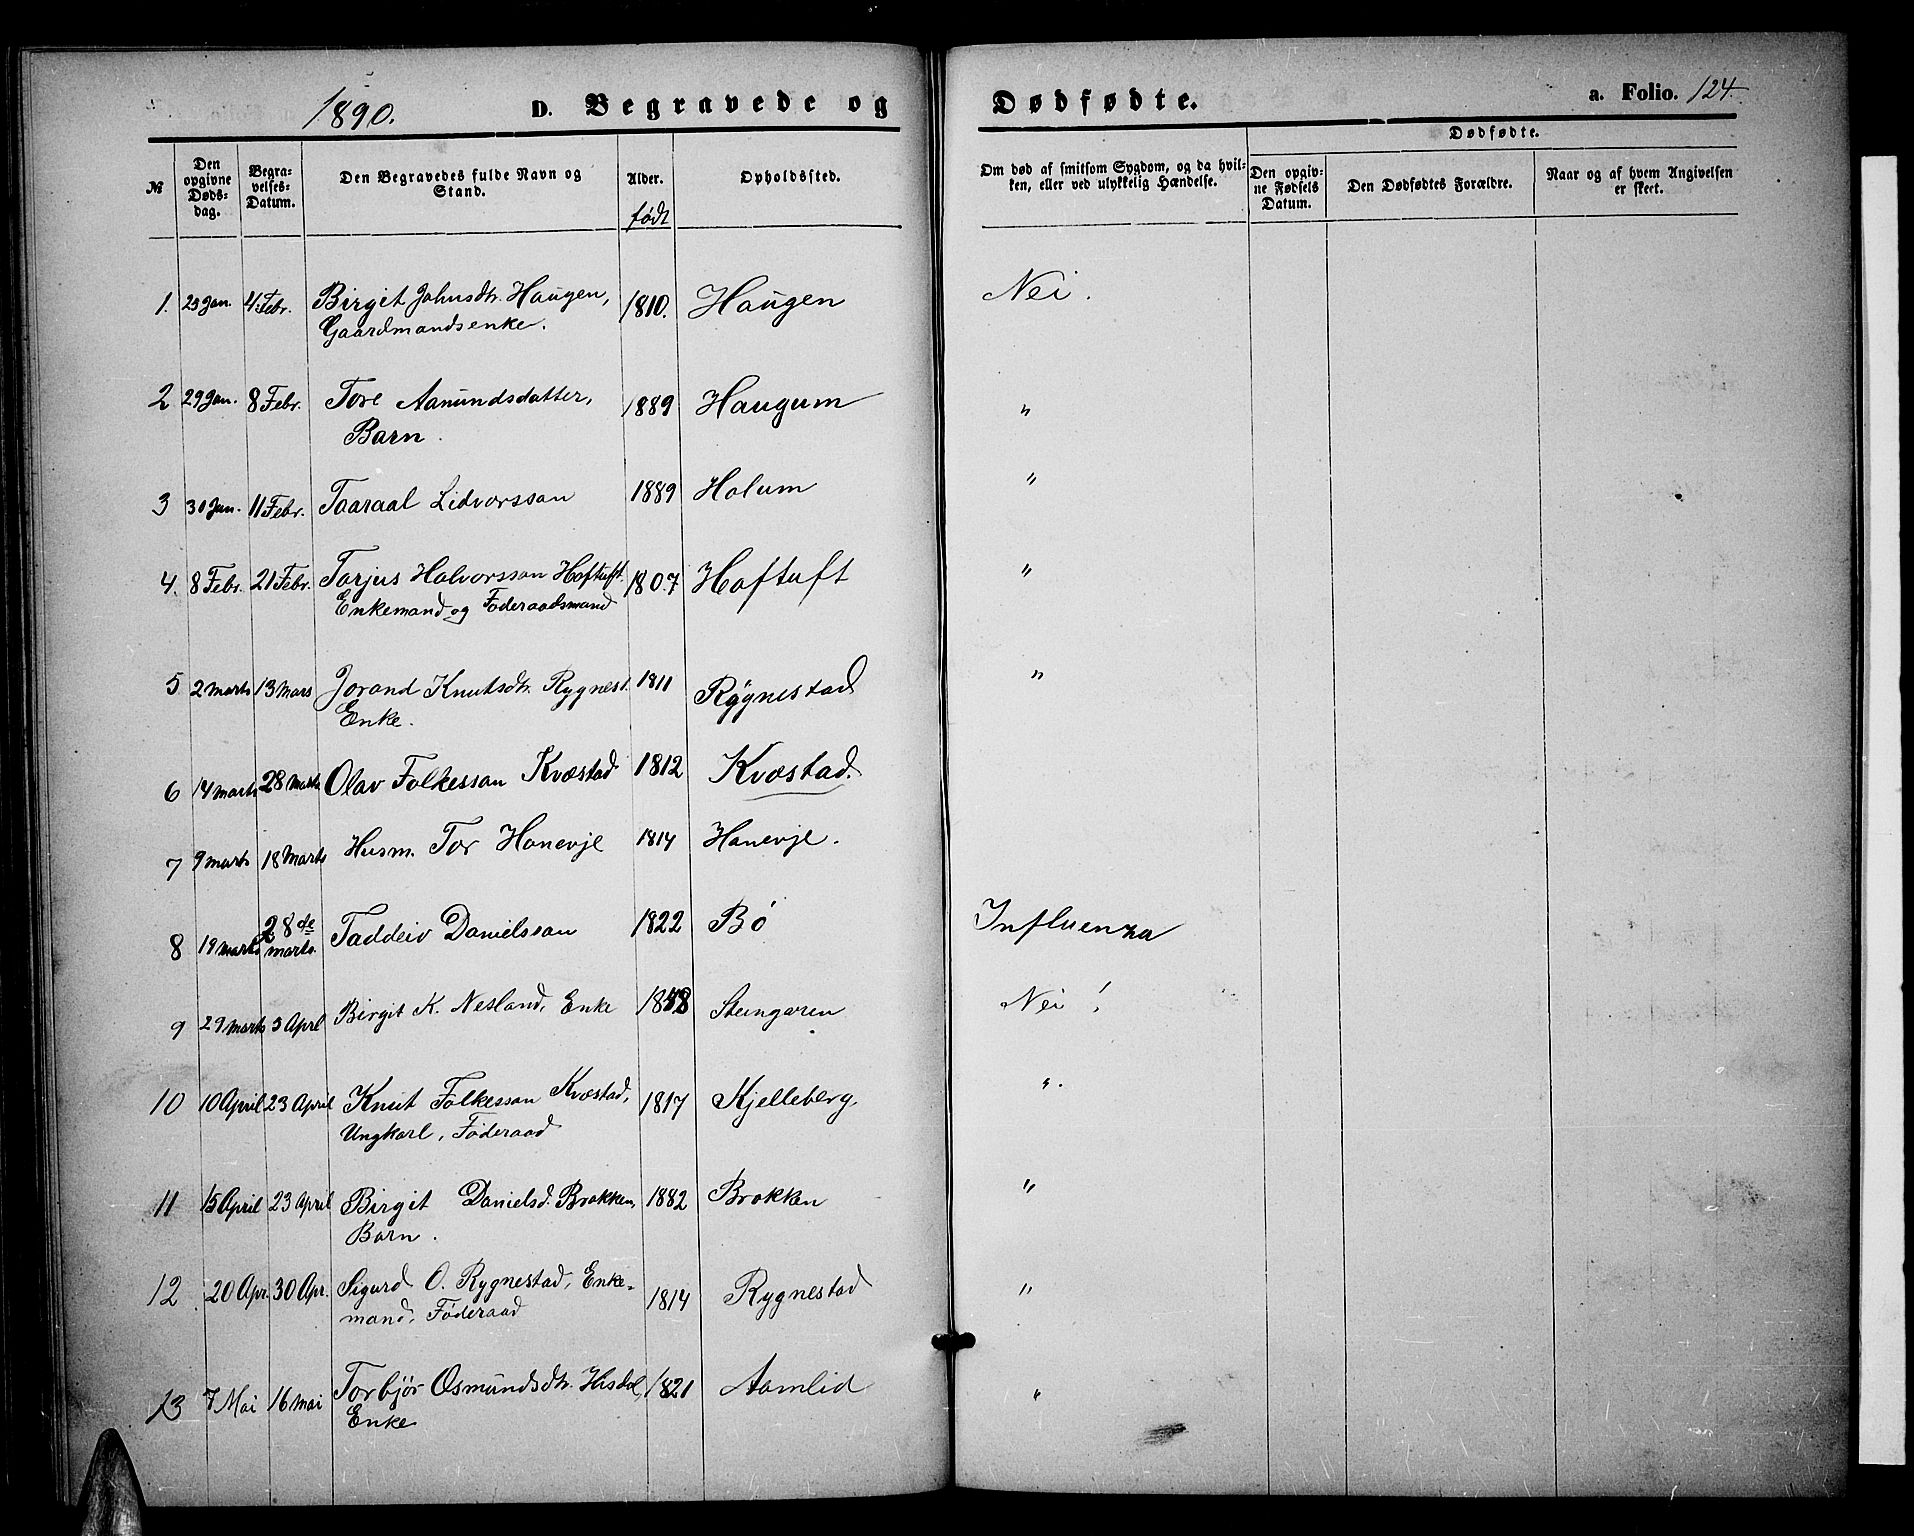 1890. D. Begravede og Dødfødte. a. Folio. 124.
№ Den opgivne Døds-dag. Begra-velses-Datum. Den Begravedes fulde Navn og Stand. Alder. født Opholdssted. Om død af smitsom Sygdom, og da hvil-ken, eller ved ulykkelig Hændelse. Dødfødte. Den opgiv-ne Fødsels Datum. Den Dødfødtes Forældre. Naar og af hvem Angivelsen er skeet.
1. 25 Jan. 4 Febr. Birgit Johnsdtr. Haugen, 1810. Haugen Nei.
Gaardmandsenke.
2 29 Jan. 8 Febr. Tore Aanundsdatter, 1889 Haugum "
Barn.
3 30 Jan. 11 Febr. Taaraal Lidvorsson 1889 Holum "
4. 8 Febr. 21 Febr. Torjus Halvorsson Hoftuft. 1807 Hoftuft "
Enkemand og Føderaadsmand
5 2 Marts 13 Mars Jorand Knutsdtr. Rygnest. 1811 Rygnestad "
Enke.
6 14 Marts 28 Marts Olav Folkesson Kvæstad 1812 Kvæstad.
7 9 Marts 18 Marts Husm. Tor Honevje 1814 Honevje.
8 19 Marts 28de marts. Taddeiv Danielsson 1822 Bø Influenza
9 29 Marts 5 April Birgit K. Nesland, Enke Steingaren Nei!
10 10 April 23 April Knut Folkesson Kvæstad, 1817 Kjelleberg. "
Ungkarl, Føderaad
11 15 April 23 April Birgit Danielsd. Brokken, 1882 Brokken "
Barn.
12 20 Apr. 30 Apr. Sigurd O. Rygnestad, Enke- 1814 Rygnestad "
mand, Føderaad
13 7 Mai 16 mai Torbjør Osmundsdtr. Hisdal, 1821 Aamlid "
Enke